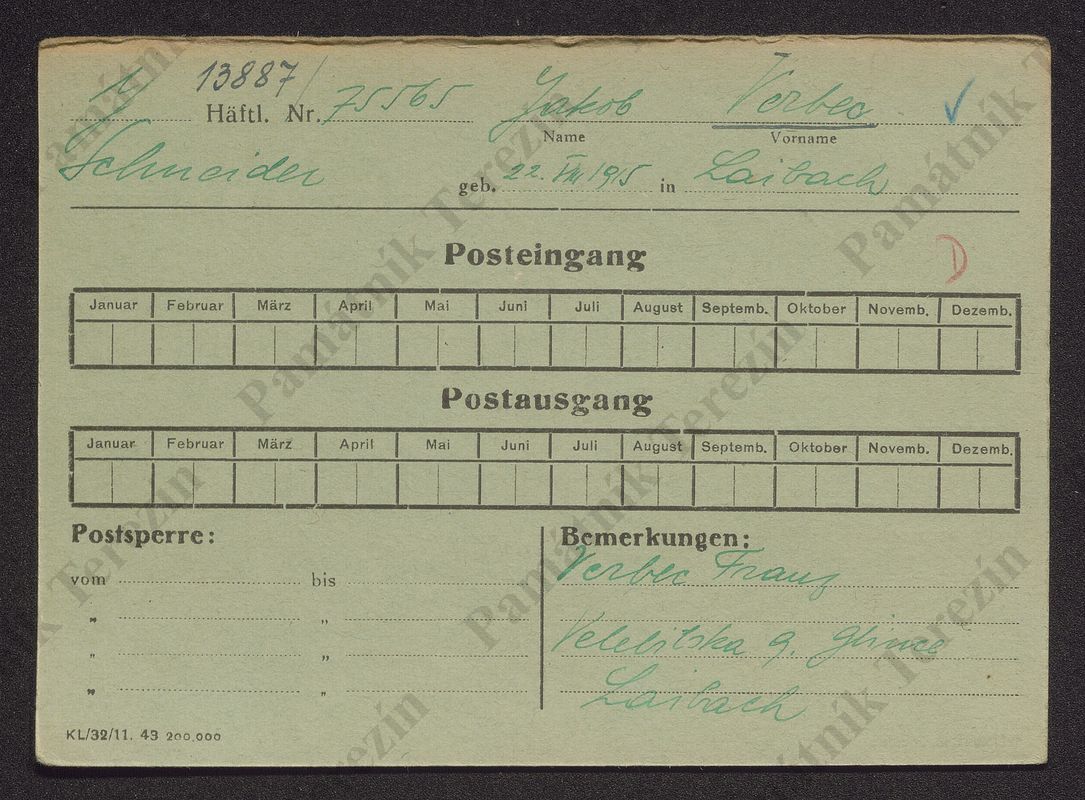 13887/
Häftl. Nr. 75565 Jakob Verbec
Name Vorname
Schneider geb. 22. VIII 1915 in Laibach
D
Posteingang
Januar Februar März April Mai Juni Juli August Septemb. Oktober Novemb. Dezemb.
Postausgang
Januar Februar März April Mai Juni Juli August Septemb. Oktober Novemb. Dezemb.
Postsperre: Bemerkungen:
Verbec Franz
vom bis
" "
Velebitska 9. Glince
" "
Laibach
" "
KL/32/11. 43 200.000
Památník Terezín